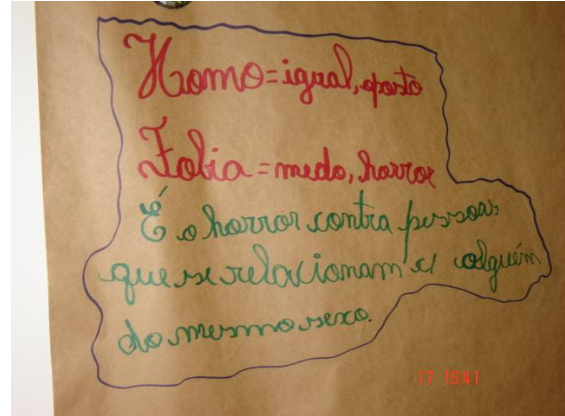 Homo=igual, oposto
Fobia=medo, horror
É o horror contra pessoas
que se relacionam c/ alguém
do mesmo sexo.
17 15:41